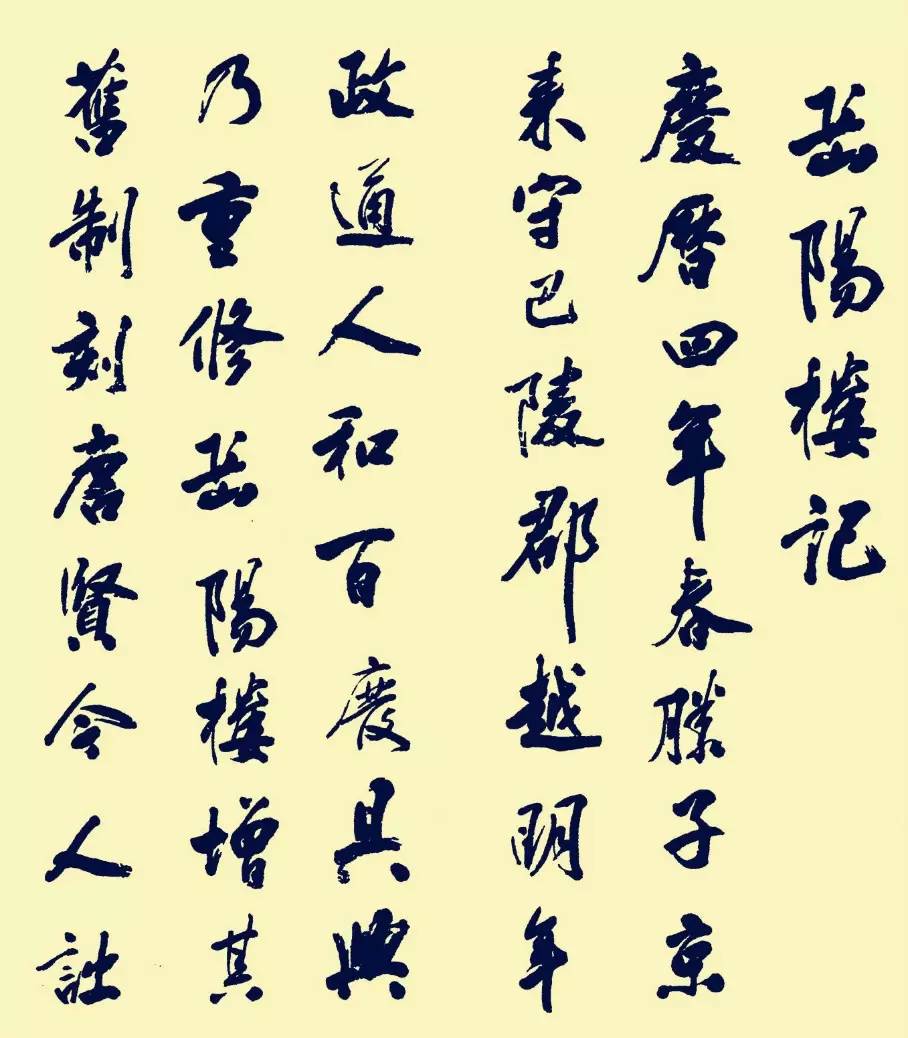 岳陽樓記
慶曆四年春滕子京
来守巴陵郡越明年
政通人和百度具興
乃重修岳陽樓增其
舊制刻唐賢今人詩